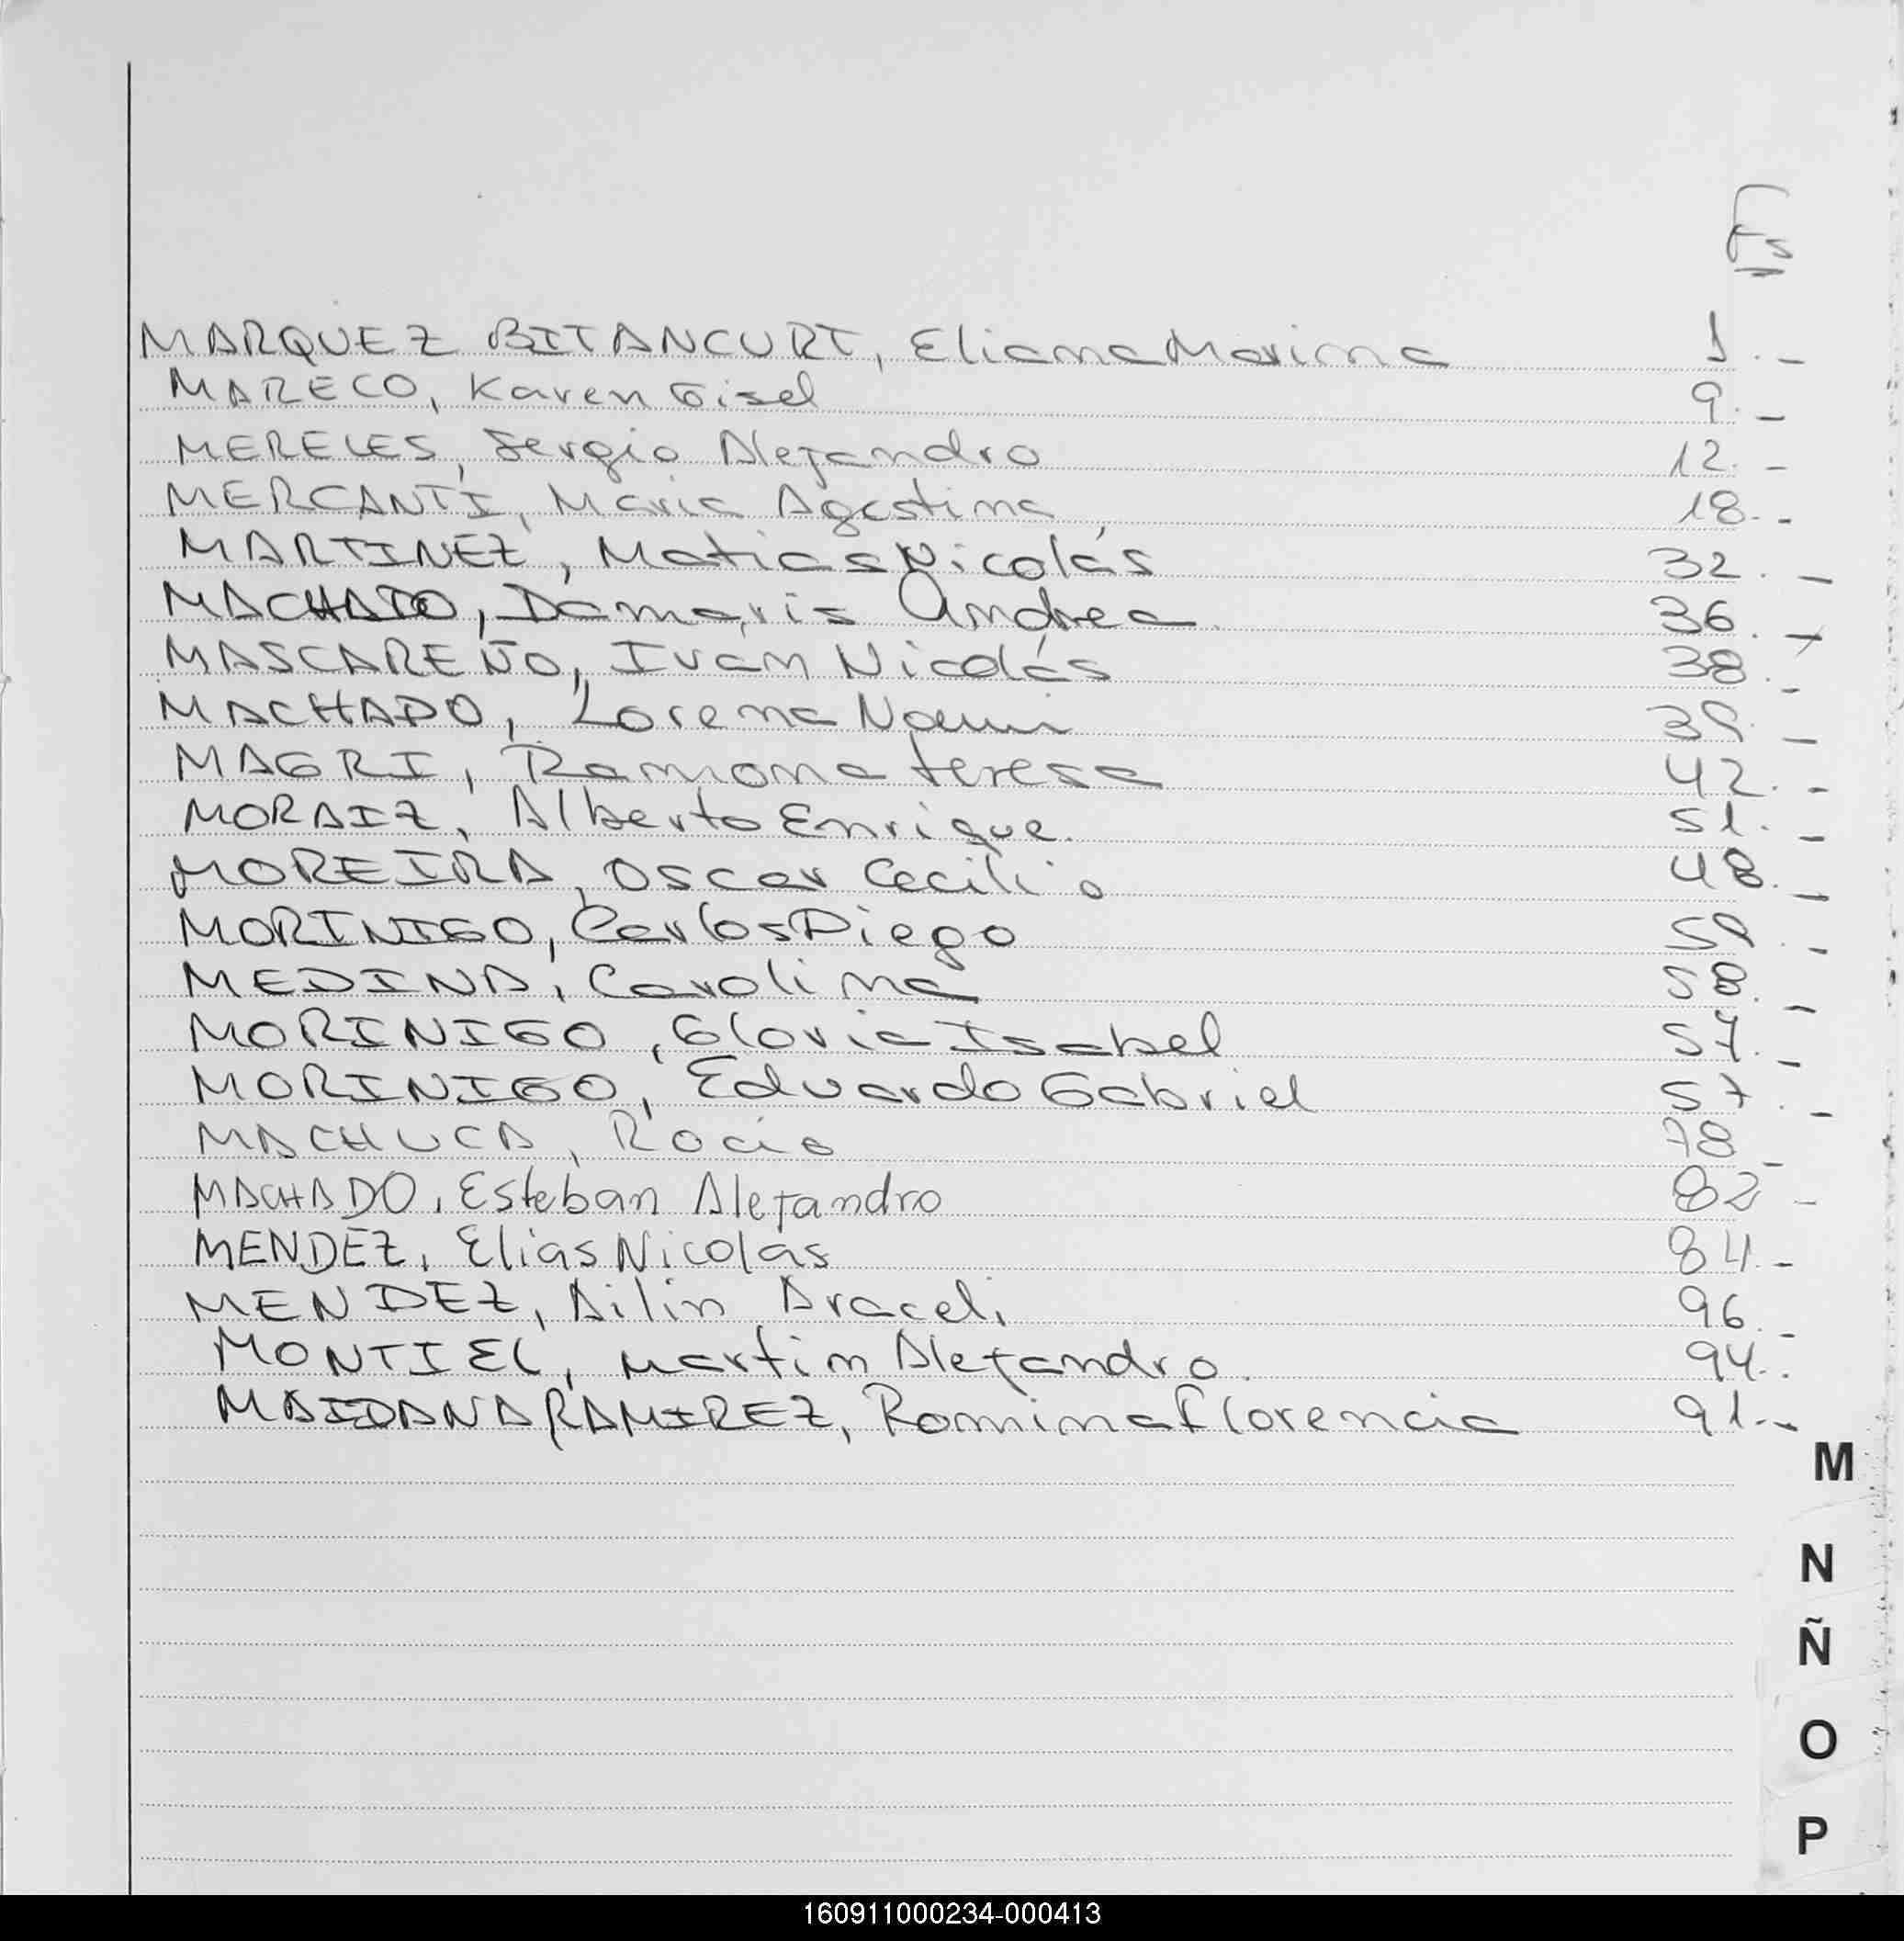 Fs
MARQUEZ BITANCURT, Eliana Marina 1.-
MARECO, Karen Gisel 9.-
MERELES, Sergio Alejandro 12.-
MERCANTI, Maria Agostina 18.-
MARTINEZ, Matias Nicolás 32.-
MACHADO, Damaris Andrea 36.-
MASCAREÑO, Ivan Nicolás 38.-
MACHADO, Lorena Noemi 39.-
MAGRI, Ramona teresa 42.-
MORAIZ, Alberto Enrique. 51.-
MOREIRA, Oscar Cecilio 48.-
MORINIGO, Carlos Diego 59.-
MEDINA, Carolina 58.-
MORINIGO, Gloria Isabel 57.-
MORINIGO, Eduardo Gabriel 57.-
MACHUCA, Rocio 78-
MACHADO, Esteban Alejandro 82-
MENDEZ, Elias Nicolás 84.-
MENDEZ, Ailin Araceli 96.-
MONTIEL, Martin Alejandro. 94..
MAIDANA RAMIREZ, Romina florencia 91.-
M
N
Ñ
O
P
160911000234-000413